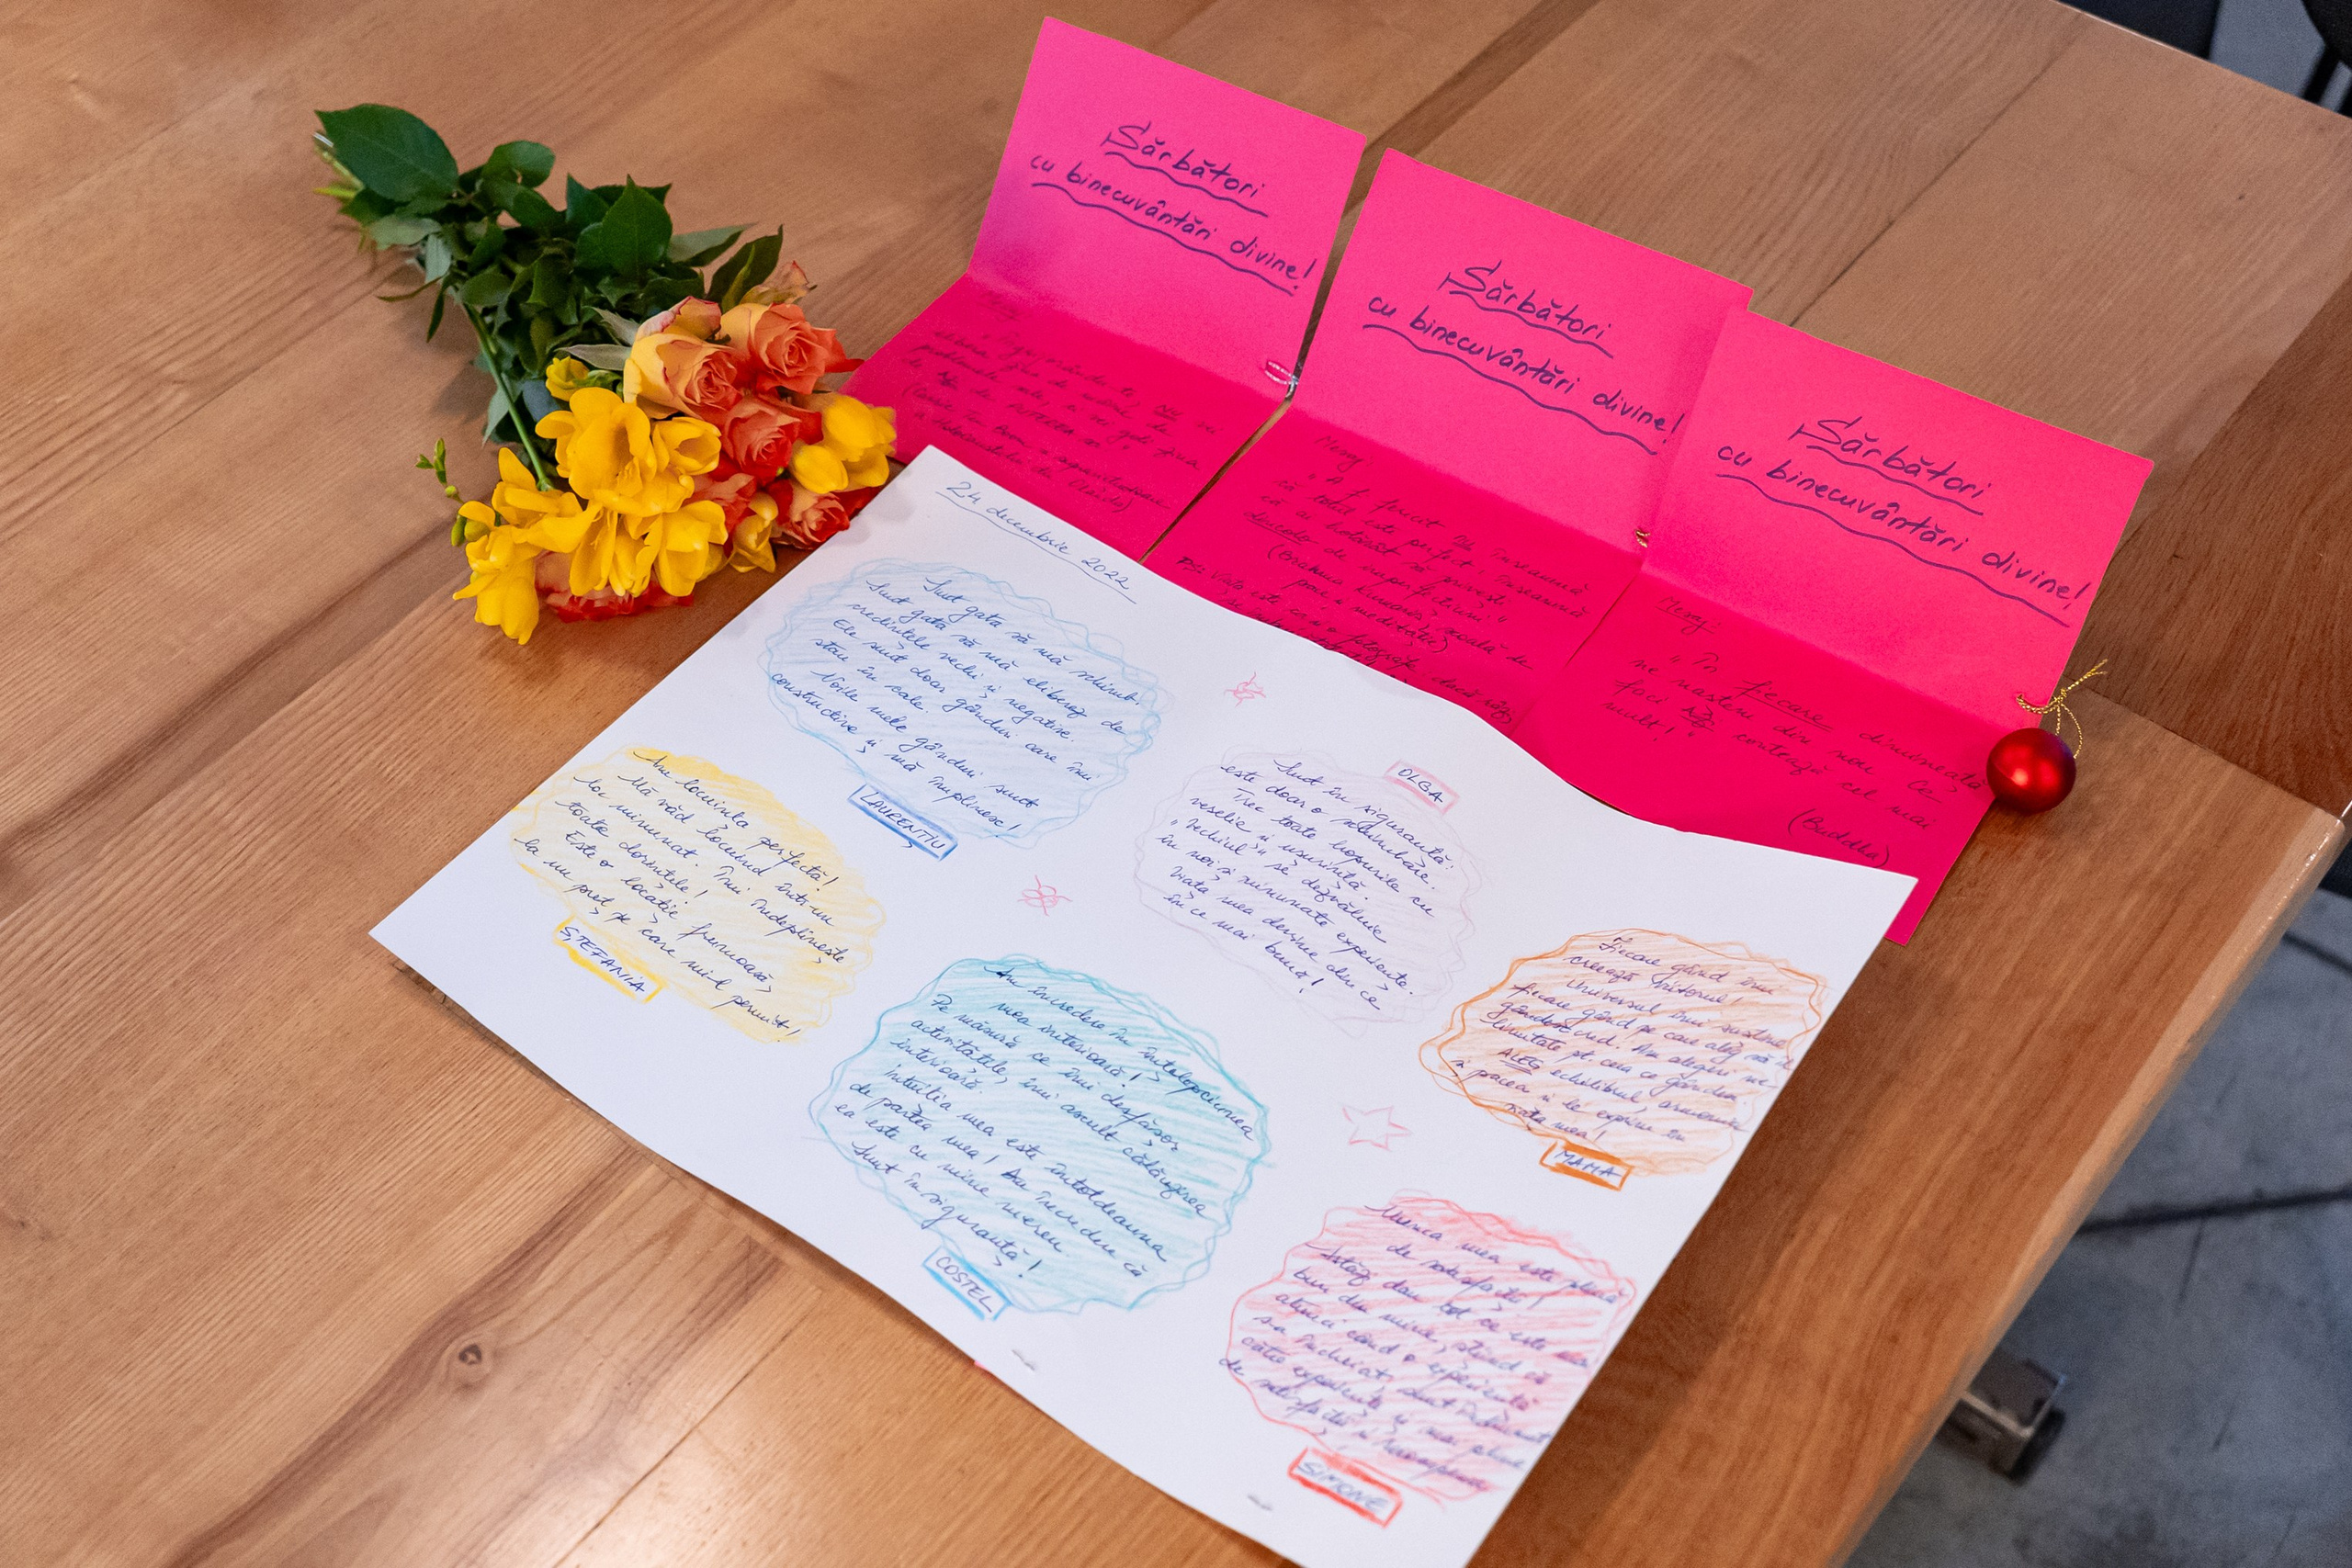 Sărbători
cu binecuvântări divine!
Sărbători
cu binecuvântări divine!
Merry
"A fi fericit NU înseamnă
că totul este perfect. Înseamnă
că ai hotărât să privești
dincolo de imperfecțiuni"
(Brahma Kumaris, școală de
pace și meditație)
PS: Viața este ca o fotografie
Sărbători
cu binecuvântări divine!
Merry
"În fiecare dimineață
ne naștem din nou. Ce
faci azi contează cel mai
mult!"
(Buddha)
24 decembrie 2022
Sunt gata să mă schimb.
Sunt gata să mă eliberez de
credințele vechi și negative.
Ele sunt doar gânduri care îmi
stau în cale.
Noile mele gânduri sunt
constructive și mă împlinesc!
LAURENȚIU
Am locuința perfectă!
Mă văd locuind într-un
loc minunat. Îmi îndeplinește
toate dorințele!
Este o locație frumoasă,
la un preț pe care mi-l permit!
ȘTEFANIA
OLGA
Sunt în siguranță:
este doar o schimbare.
Trec toate hopurile cu
veselie și ușurință.
"Vechiul" se dezvăluie
în noi și minunate experiențe.
Viața mea devine din ce
în ce mai bună!
Am încredere în înțelepciunea
mea interioară!
Pe măsură ce îmi desfășor
activitățile, îmi ascult călăuzirea
interioară.
Intuiția mea este întotdeauna
de partea mea! Am încredere că
ea este cu mine mereu.
Sunt în siguranță!
COSTEL
Fiecare gând îmi
creează viitorul!
Universul îmi susține
fiecare gând pe care aleg să-l
gândesc cred. Am alegeri ne-
limitate pt. ceea ce gândesc
ALEG echilibrul, armonia
și pacea și le exprim în
viața mea!
MAMA
Munca mea este plină
de satisfacții!
Astăzi dau tot ce este mai
bun din mine, știind că
atunci când o experiență
s-a încheiat, sunt îndrumat
către experiențe și mai pline
de satisfacții și recompense
SIMONE